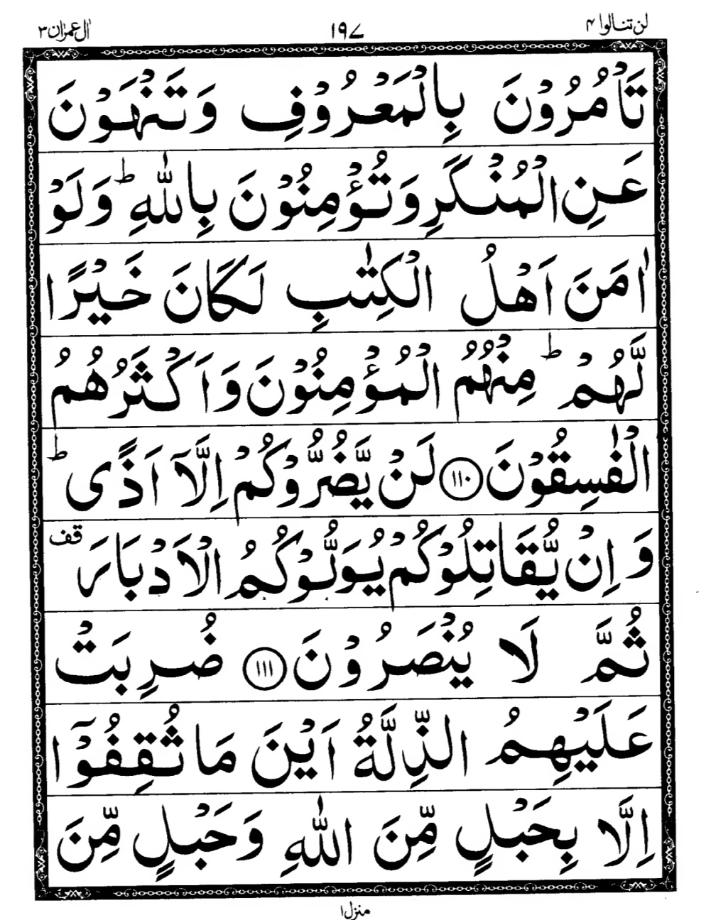 لن تنالوا ۴ ۱۹۷ اٰل عمرٰن ۳
تَاْمُرُوْنَ بِالْمَعْرُوْفِ وَتَنْهَوْنَ
عَنِ الْمُنْكَرِ وَتُؤْمِنُوْنَ بِاللّٰهِ ؕ وَلَوْ
اٰمَنَ اَهْلُ الْكِتٰبِ لَكَانَ خَيْرًا
لَّهُمْ ؕ مِنْهُمُ الْمُؤْمِنُوْنَ وَاَكْثَرُهُمُ
الْفٰسِقُوْنَ ۝۱۱۰ لَنْ يَّضُرُّوْكُمْ اِلَّاۤ اَذًى ؕ
وَاِنْ يُّقَاتِلُوْكُمْ يُوَلُّوْكُمُ الْاَدْبَارَ قف
ثُمَّ لَا يُنْصَرُوْنَ ۝۱۱۱ ضُرِبَتْ
عَلَيْهِمُ الذِّلَّةُ اَيْنَ مَا ثُقِفُوْۤا
اِلَّا بِحَبْلٍ مِّنَ اللّٰهِ وَحَبْلٍ مِّنَ
منزل ۱